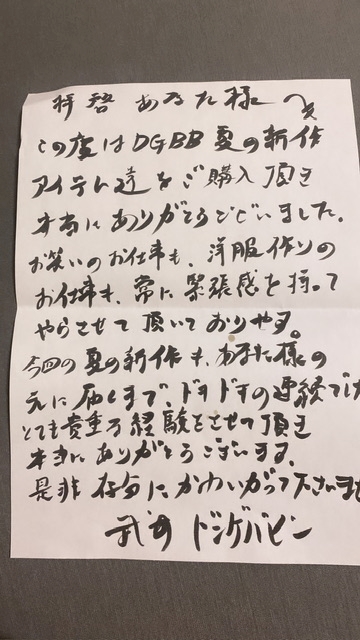 拝啓 あなた様へ
この度はDGBB夏の新作
アイテム達をご購入頂き
本当にありがとうございました。
お笑いのお仕事も、洋服作りの
お仕事も、常に緊張感を持って
やらさせて頂いております。
今回の夏の新作も、あなた様の
元に届くまで、ドキドキの連続でし
とても貴重な経験をさせて頂き
本当にありがとうございます。
是非 存分にかわいがって下さいませ
武者 ドンゲバビー